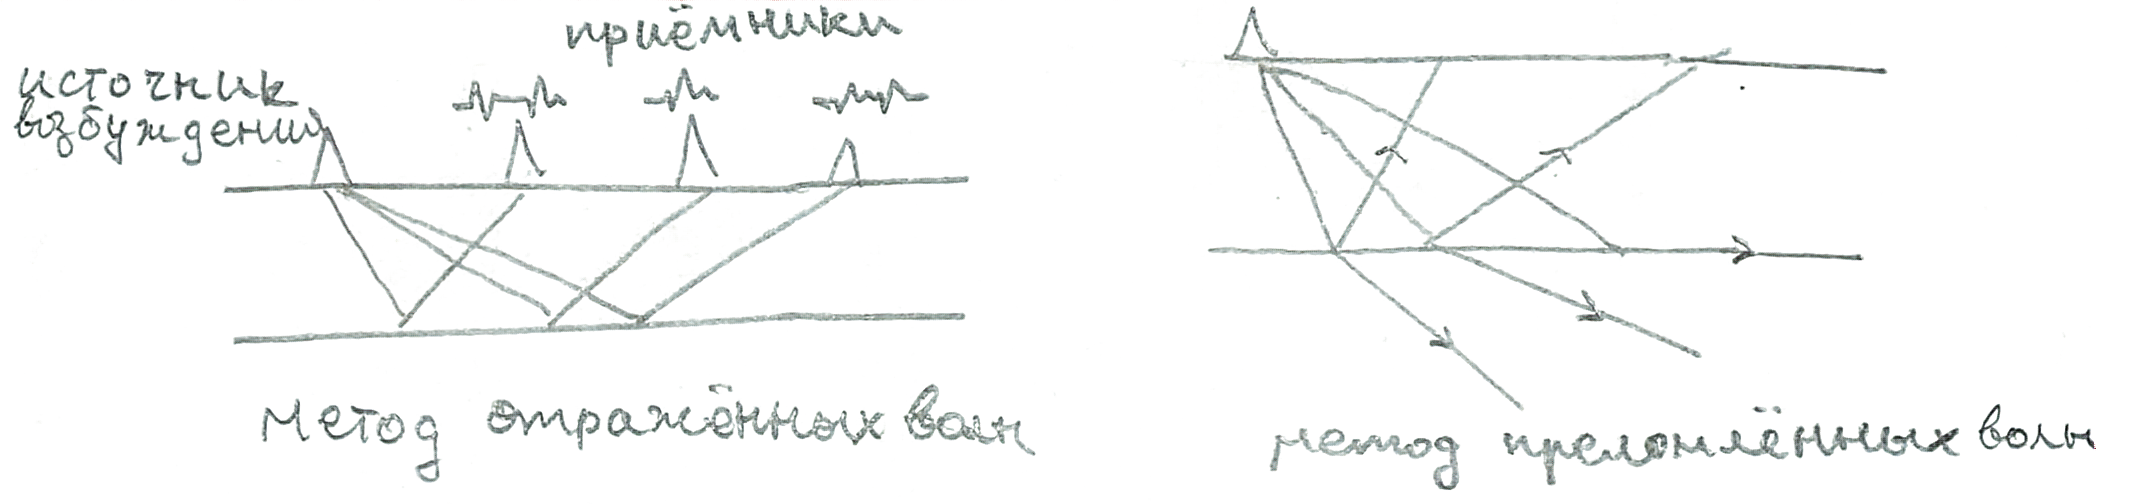 приёмники
источник
возбуждений
метод отражённых волн
метод преломлённых волн